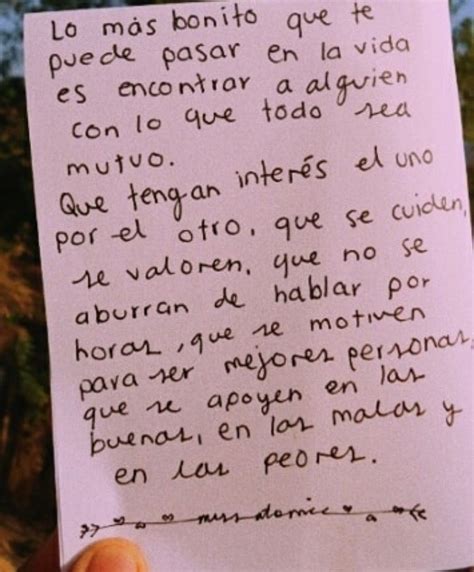 Lo más bonito que te
puede pasar en la vida
es encontrar a alguien
con lo que todo sea
mutuo.
Que tengan interés el uno
por el otro, que se cuiden,
se valoren, que no se
aburran de hablar por
horas, que se motiven
para ser mejores personas,
que se apoyen en las
buenas, en las malas y
en las peores.